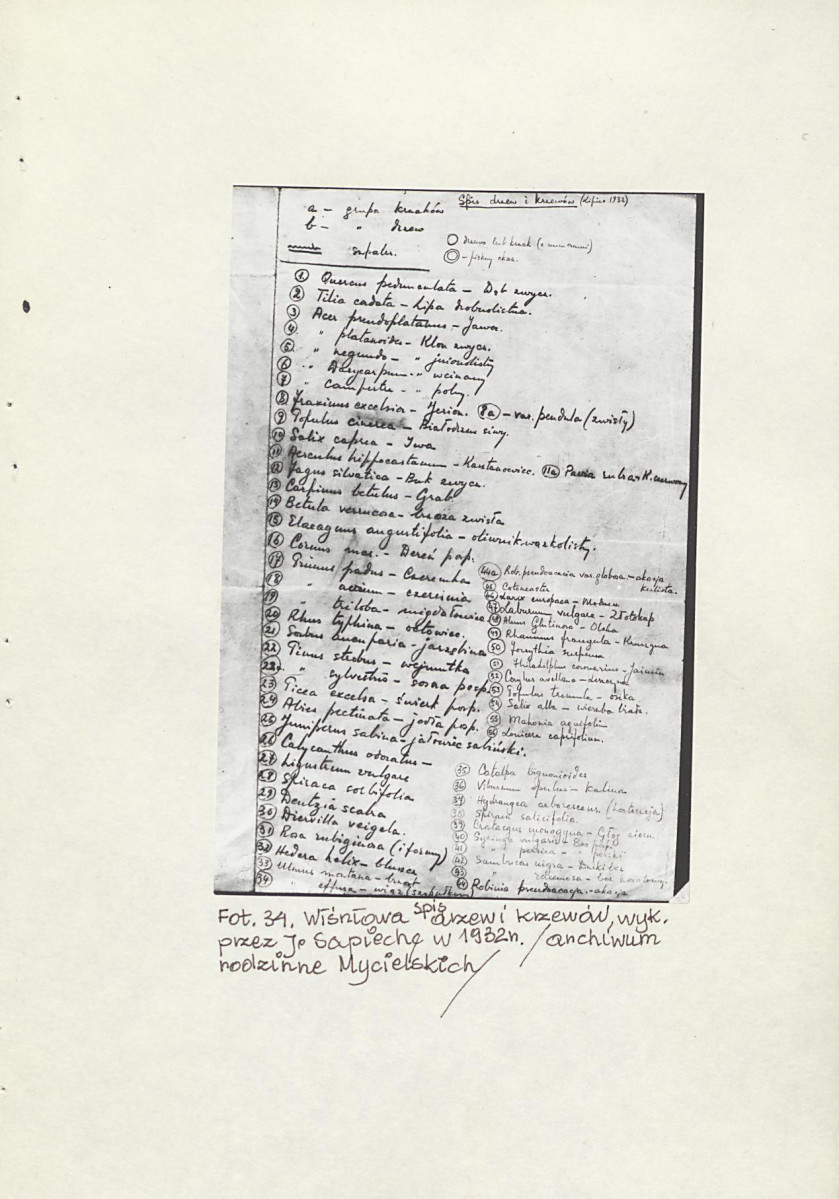 Spis drzew i krzewów (Lipiec 1932)
a - grupa krzaków
b - " drzew
drzewo lub krzak (z numerami)
szpaler.
- piękny okaz.
1 Quercus pedunculata - Dąb zwycz.
2 Tilia cordata - Lipa drobnolistna.
3 Acer pseudoplatanus - Jawor.
4 " platanoides - Klon zwycz.
5 " negundo - " jesionolistny
6 " Dasycarpum - " wcinany
7 " campestre - " polny.
8 Fraxinus excelsior - Jesion. 8a - var. pendula (zwisły)
9 Populus cinerea - Białodrzew siwy.
10 Salix caprea - Iwa
11 Aesculus hippocastanum - Kasztanowiec. 11a Pavia rubra K. czerwony
12 Fagus silvatica - Buk zwycz.
13 Carpinus betulus - Grab.
14 Betula verrucosa - brzoza zwisła
15 Elaeagnus angustifolia - oliwnik wąskolistny.
16 Cornus mas. - Dereń posp.
17 Prunus padus - Czeremha
18 " avium - czereśnia
19 " triloba - migdałowiec
20 Rhus typhina - octowiec.
21 Sorbus aucuparia - jarzębina
22 Pinus strobus - wejmutka
22a " sylvestris - sosna posp.
23 Picea excelsa - świerk posp.
24 Abies pectinata - jodła posp.
25 Juniperus sabina - jałowiec sabiński.
26 Calycanthus odoratus -
27 Ligustrum vulgare
28 Spiraea sorbifolia
29 Deutzia scabra
30 Diervilla veigela.
31 Rosa rubiginosa (i formy)
32 Hedera helix - bluszcz
33 Ulmus montana - brzost
34 " effusa - wiąz (szypułkowy)
44a Rob. pseudoacacia var. globosa - akacja kulista.
45 Cotoneaster
46 Larix europaea - Modrzew
47 Laburnum vulgare - Złotokap
48 Alnus Glutinosa - Olcha
49 Rhamnus frangula - Kruszyna
50 Forsythia suspensa
51 Philadelphus coronarius - Jaśmin
52 Corylus avellana - Leszczyna
53 Populus tremula - osika
54 Salix alba - wierzba biała.
55 Mahonia aquifolia
56 Lonicera caprifolium.
35 Catalpa bignonioides
36 Viburnum opulus - kalina
37 Hydrangea arborescens. (hortensja)
38 Spiraea salicifolia.
39 Crataegus monogyna - Głóg ciern.
40 Syringa vulgaris - Bez posp.
41 " persica - " perski
42 Sambucus nigra - Dziki bez
43 " racemosa - bez koralowy.
44 Robinia pseudoacacja - akacja
Fot. 34. Wiśniowa spis drzew i krzewów, wyk.
przez J. Sapiechę w 1932r. /archiwum
rodzinne Mycielskich/